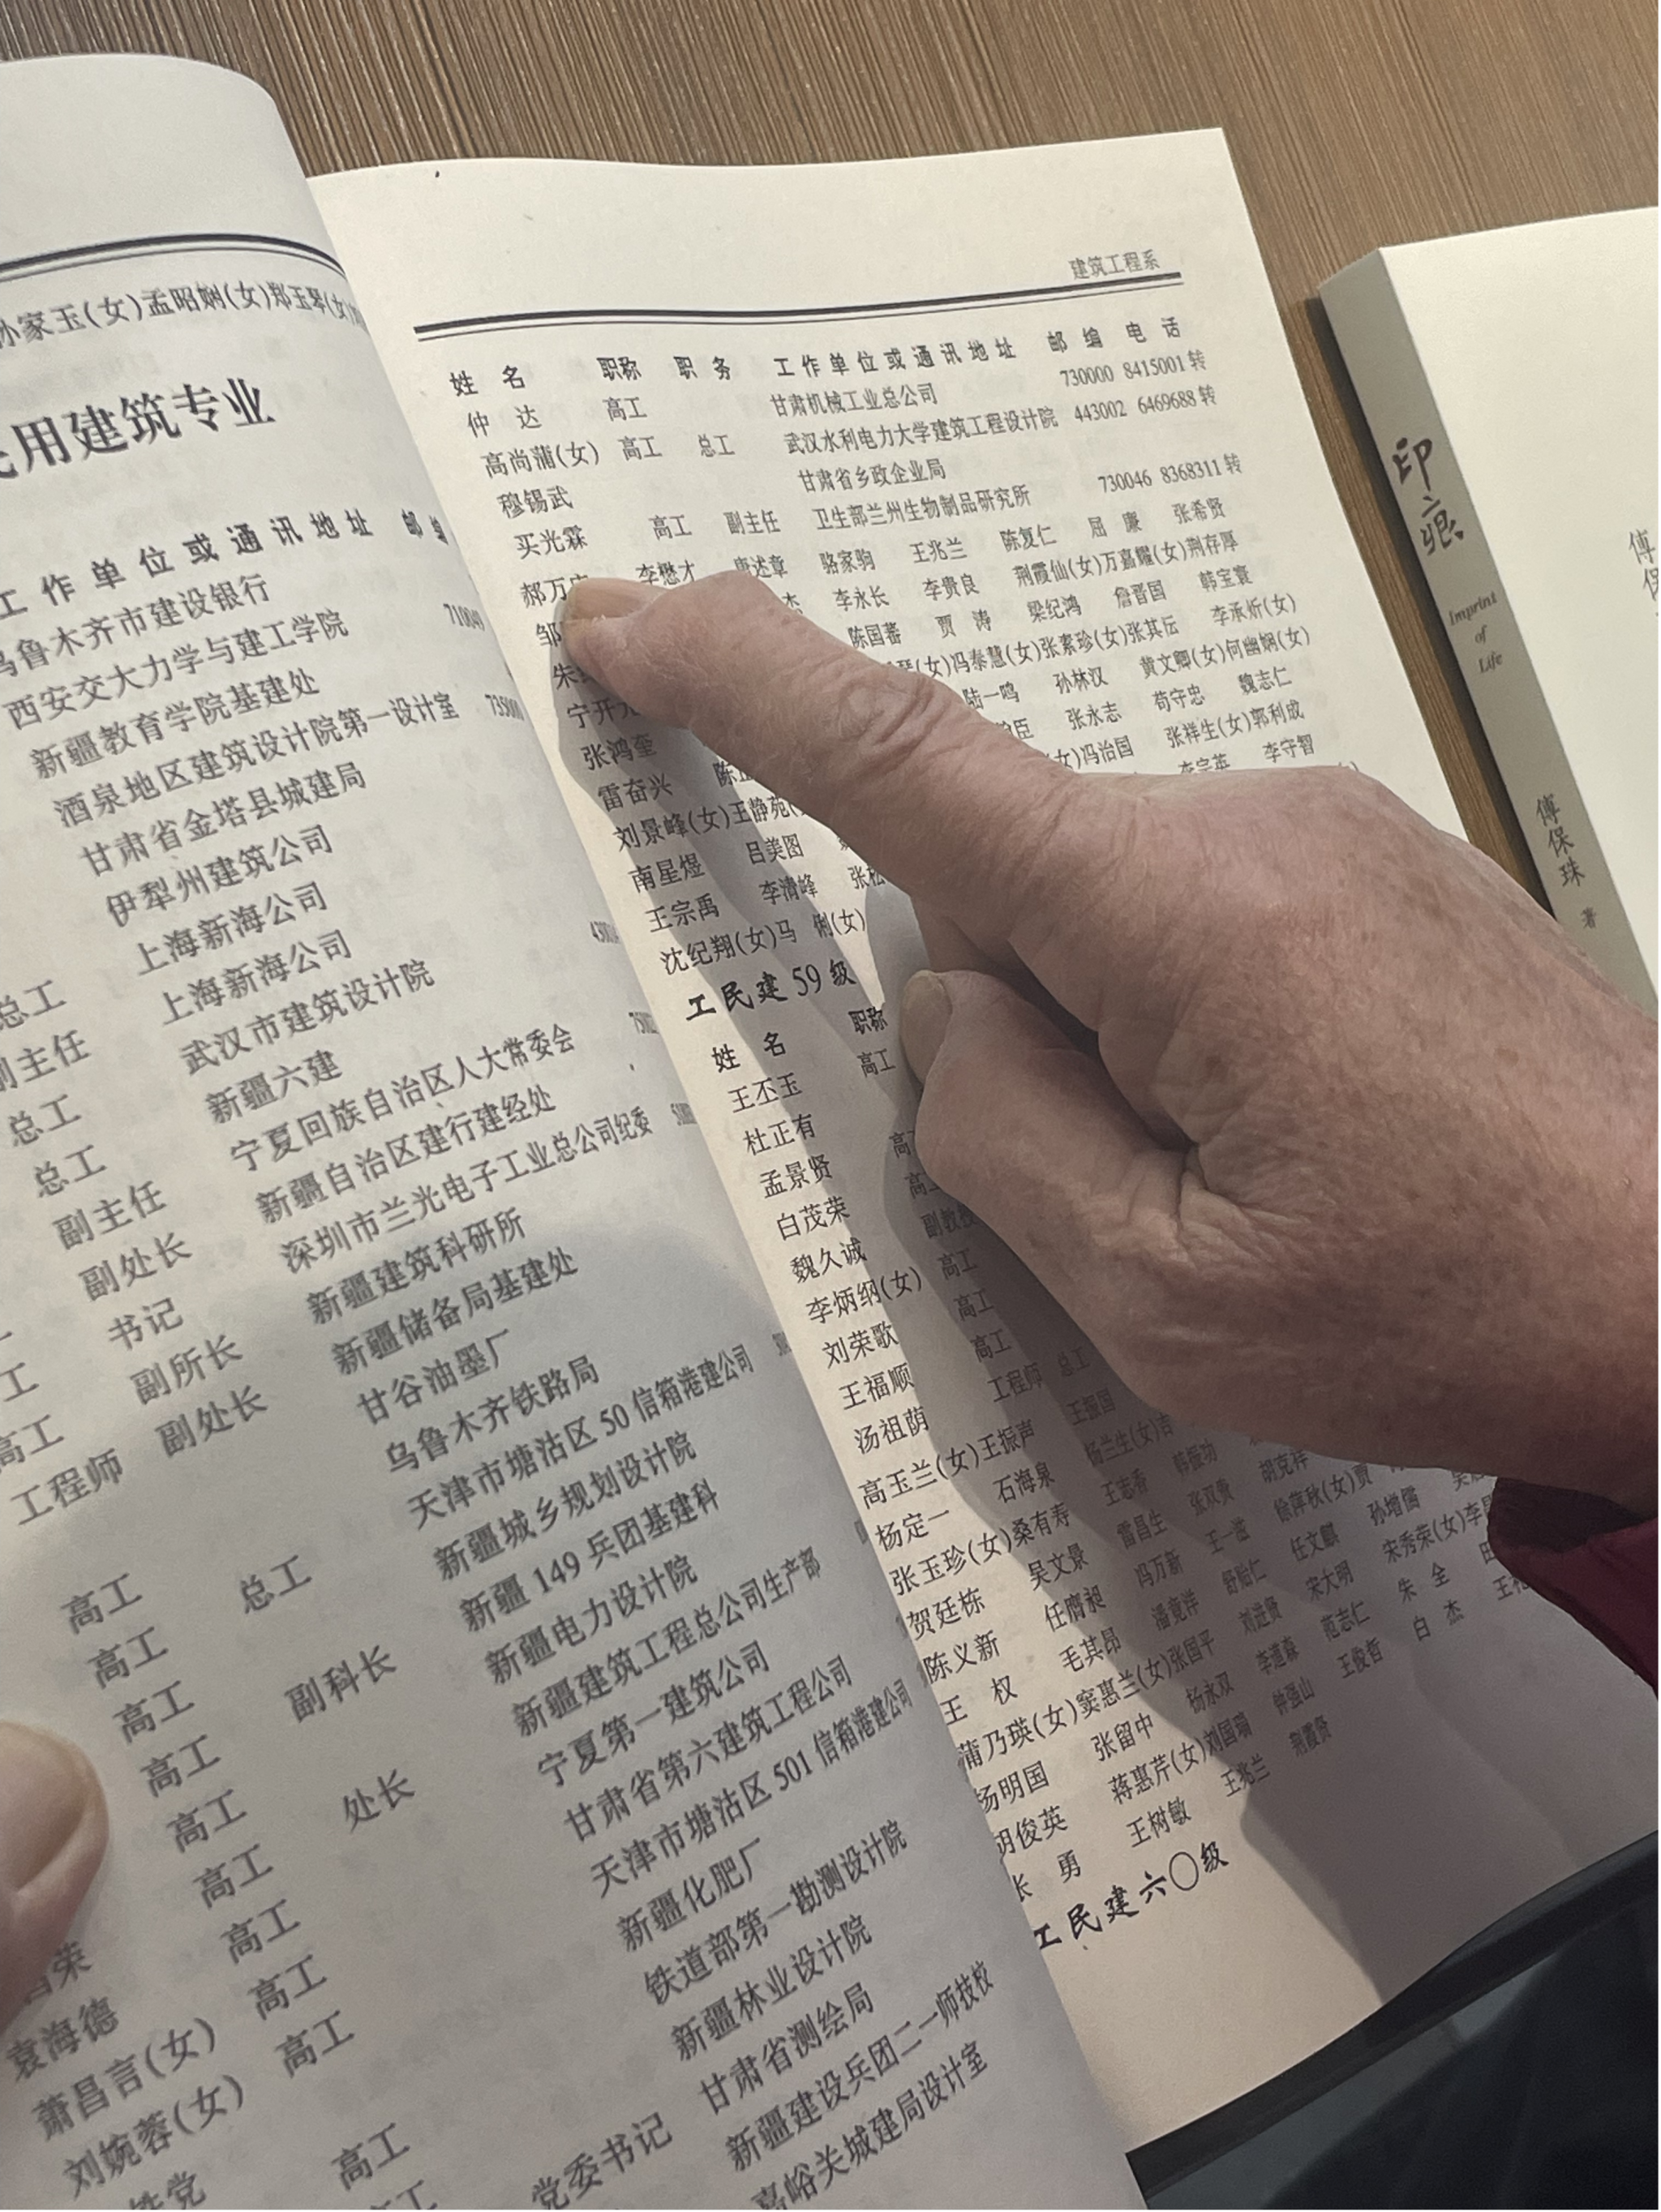 孙家玉(女)孟昭娴(女)郑玉琴(女)
民用建筑专业
工作单位或通讯地址 邮编
乌鲁木齐市建设银行
西安交大力学与建工学院 710049
新疆教育学院基建处
酒泉地区建筑设计院第一设计室 735000
甘肃省金塔县城建局
伊犁州建筑公司
总工 上海新海公司
副主任 上海新海公司
总工 武汉市建筑设计院
总工 新疆六建
副主任 宁夏回族自治区人大常委会
副处长 新疆自治区建行建经处
书记 深圳市兰光电子工业总公司纪委
工 副所长 新疆建筑科研所
高工 副处长 新疆储备局基建处
工程师 甘谷油墨厂
乌鲁木齐铁路局
高工 总工 天津市塘沽区50信箱港建公司
高工 新疆城乡规划设计院
高工 副科长 新疆149兵团基建科
高工 新疆电力设计院
高工 处长 新疆建筑工程总公司生产部
高工 宁夏第一建筑公司
高工 甘肃省第六建筑工程公司
荣 高工 天津市塘沽区501信箱港建公司
袁海德 高工 新疆化肥厂
萧昌言(女) 铁道部第一勘测设计院
刘婉蓉(女) 高工 新疆林业设计院
党 高工 党委书记 甘肃省测绘局
新疆建设兵团二一师技校
嘉峪关城建局设计室
建筑工程系
姓 名 职称 职务 工作单位或通讯地址 邮编 电话
仲 达 高工 甘肃机械工业总公司 730000 8415001转
高尚蒲(女) 高工 总工 武汉水利电力大学建筑工程设计院 443002 6469688转
穆锡武 甘肃省乡政企业局
买光霖 高工 副主任 卫生部兰州生物制品研究所 730046 8368311转
郝万 李懋才 唐述章 骆家驹 王兆兰 陈复仁 屈 廉 张希贤
邹 杰 李永长 李贵良 荆霞仙(女)万嘉耀(女)荆存厚
朱 陈国蕃 贾 涛 梁纪鸿 詹晋国 韩宝寰
宁开 琴(女)冯泰慧(女)张素珍(女)张其伝 李承炘(女)
张鸿奎 陆一鸣 孙林汉 黄文卿(女)何幽娴(女)
雷奋兴 陈 臣 张永志 苟守忠 魏志仁
刘景峰(女)王静苑 (女)冯治国 张祥生(女)郭利成
南星煜 吕美图 李宗英 李守智
王宗禹 李清峰 张松
沈纪翔(女)马 俐(女)
工民建59级
姓 名 职称
王丕玉 高工
杜正有
孟景贤 高工
白茂荣 高工
魏久诚 副教授
李炳纲(女) 高工
刘荣歌 高工
王福顺 高工
汤祖荫 工程师 总工
高玉兰(女)王振声 王振国
杨定一 石海泉 杨兰生(女)
张玉珍(女)桑有寿 王志香 韩振功
贺廷栋 吴文景 雷昌生 张双贵 胡克祥
陈义新 任膺昶 冯万新 王一滋 徐萍秋(女)贾
王 权 毛其昂 潘竟洋 舒贻仁 任文麒 孙增儒
蒲乃瑛(女)窦惠兰(女)张国平 刘进贤 宋大明 宋秀荣(女)李
杨明国 张留中 杨永双 李道森 范志仁 朱 全 田
胡俊英 蒋惠芹(女)刘国瑞 钟强山 王俊哲 白 杰 王
张 勇 王树敏 王兆兰 荆霞贤
工民建六〇级
印痕
Imprint
of
Life
傅保珠 著
傅保